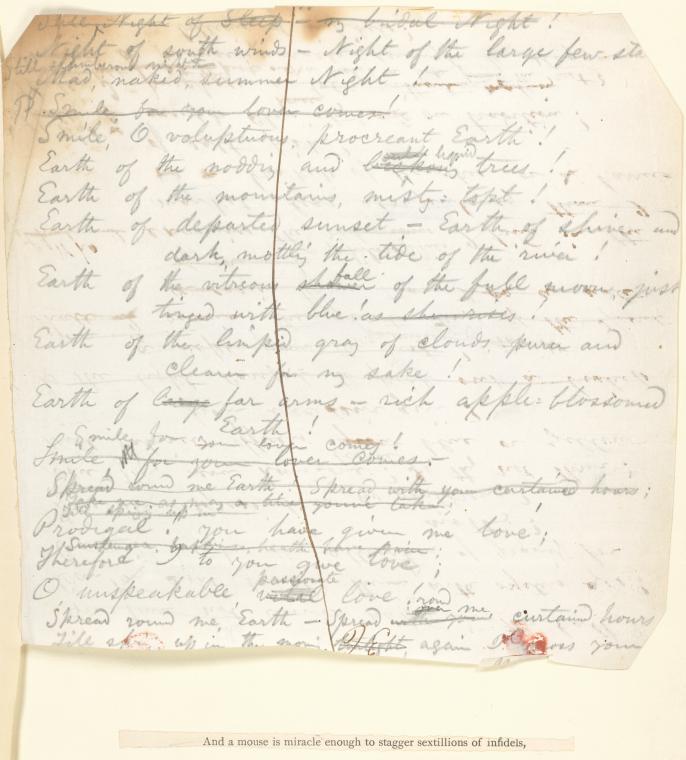 Still Night of Sleep — my bridal Night!
Night of south winds — Night of the large few sta
Still slumberous night
mad, naked, summer Night!
Smile, for your lover comes!
Smile, O voluptuous procreant Earth!
liquid
Earth of the nodding and trees!
Earth of the mountains, misty-topt!
Earth of departed sunset — Earth of shine and
dark, mottling the tide of the river!
fall
Earth of the vitreous shower of the full moon just
tinged with blue! as she rises!
Earth of the limpid gray of clouds purer and
clearer for my sake!
Earth of large far arms — rich apple-blossomed
Earth!
Smile for your lover comes!
Smile, for your lover comes.
Spread round me Earth Spread with your curtained hours;
Prodigal! you have given me love;
Therefore I to you give love;
passionate
O unspeakable love!
me
Spread round me Earth — Spread with your curtained hours
Till up in the again I your
And a mouse is miracle enough to stagger sextillions of infidels,